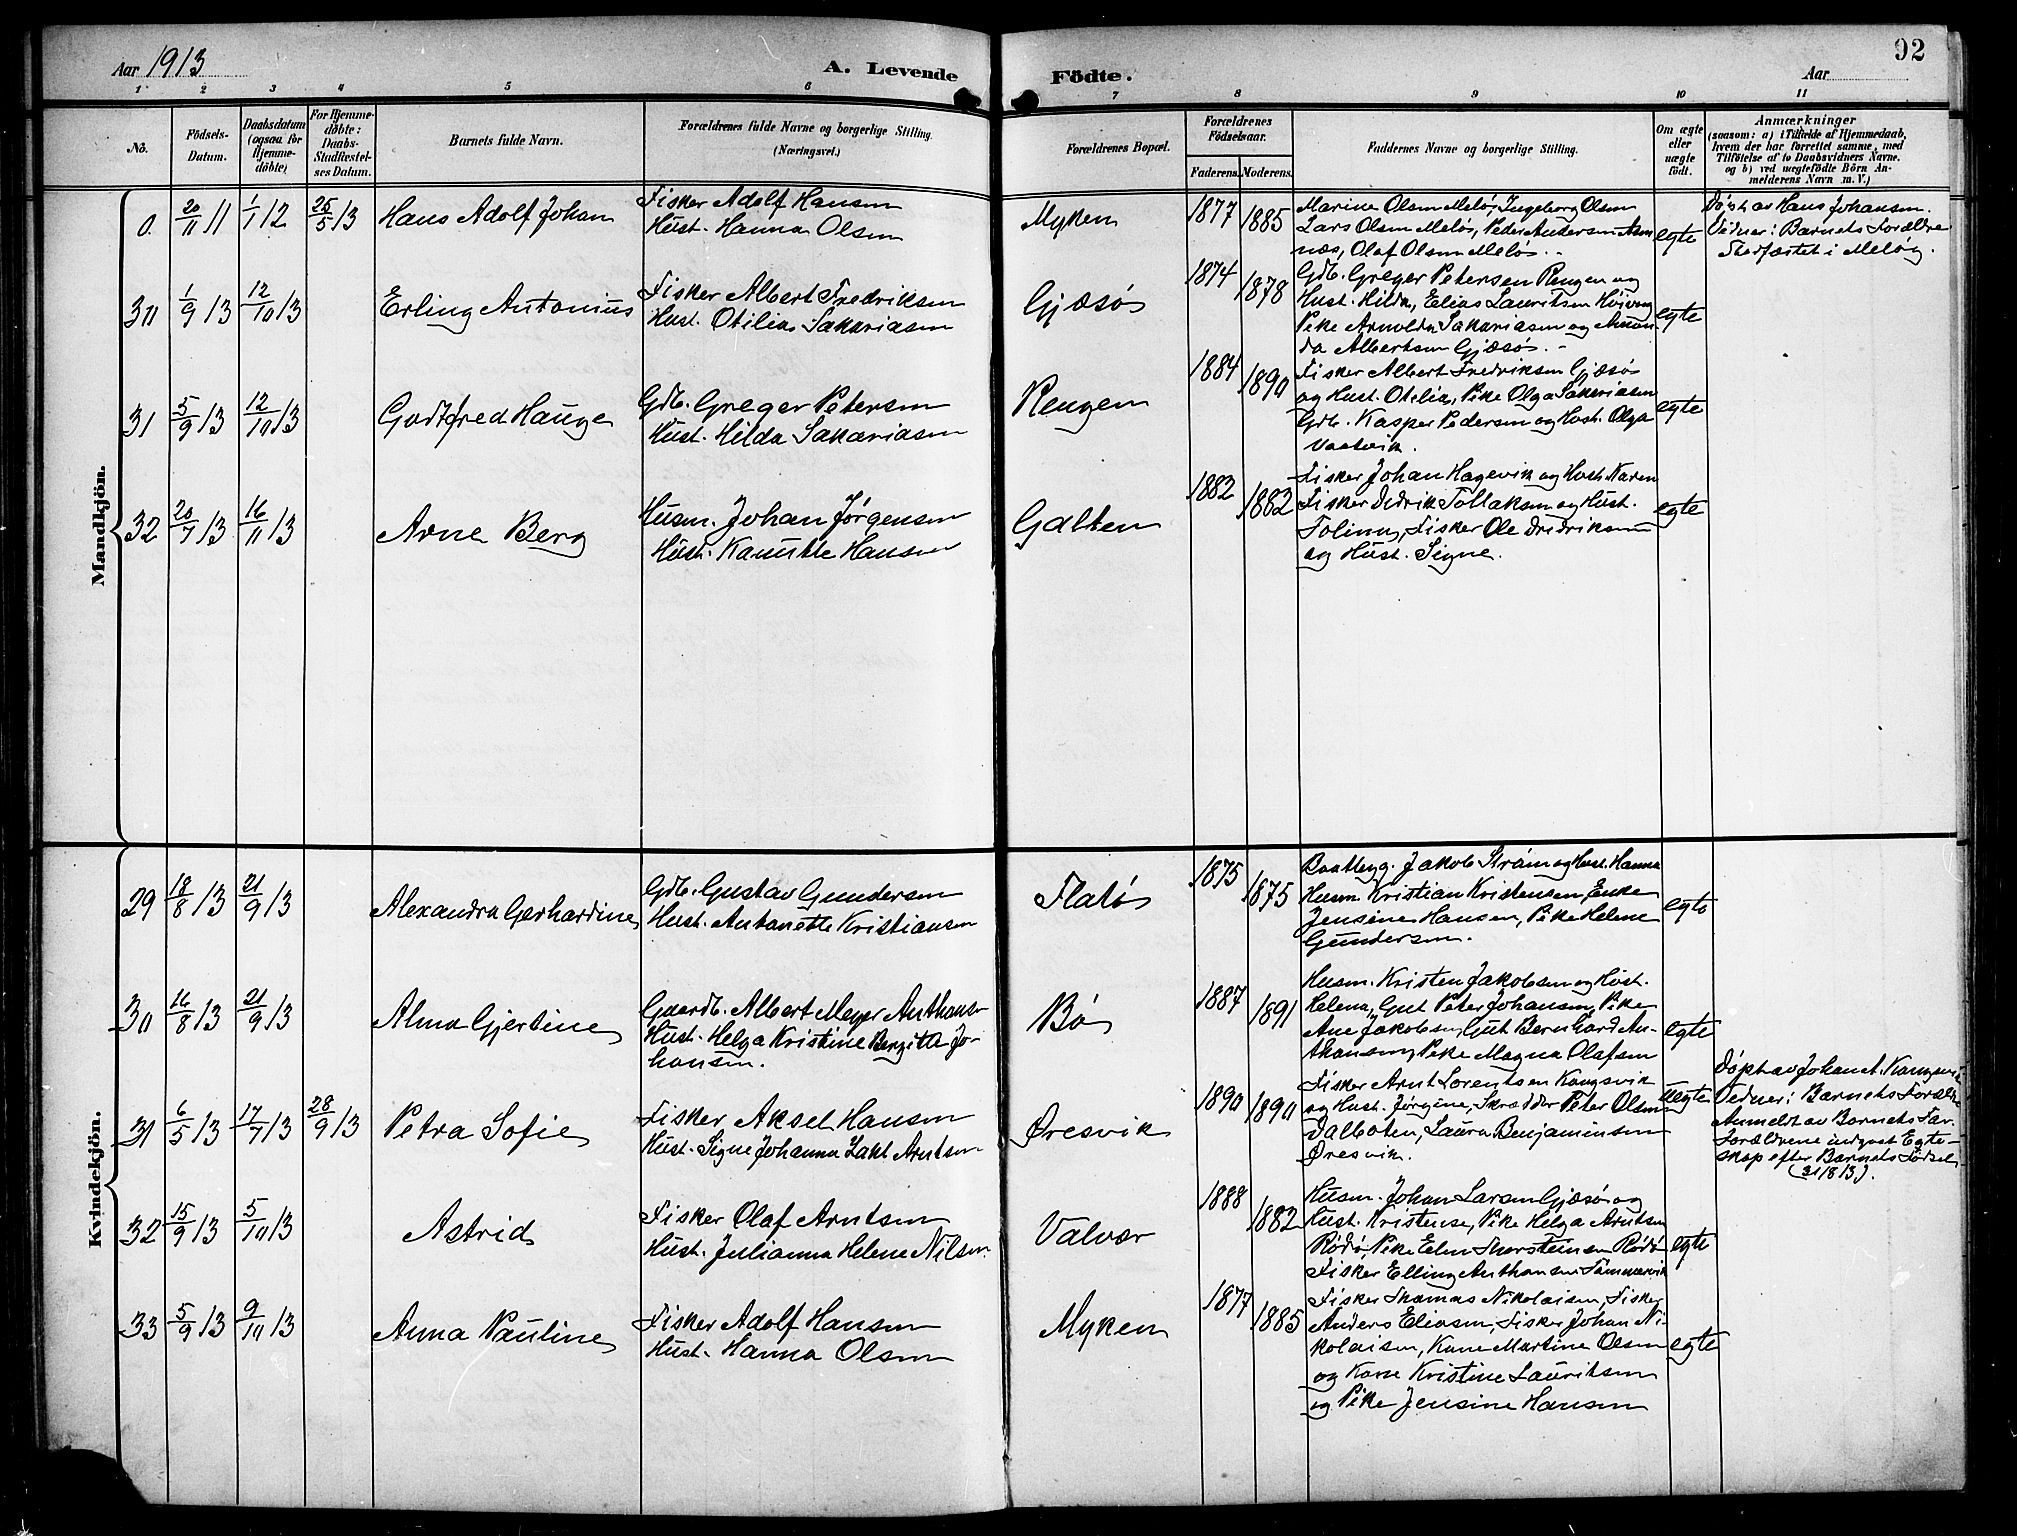 Aar 1913
A. Levende
Födte.
Aar
92
1 2 3 4 5 6 7 8 9 10 11
No.
Födsels-
Datum.
Daabsdatum
(ogsaa for
Hjemme-
döbte)
For Hjemme-
döbte:
Daabs-
Stadfæstel-
ses Datum.
Barnets fulde Navn.
Forældrenes fulde Navne og borgerlige Stilling.
(Næringsvei.)
Forældrenes Bopæl.
Forældrenes
Födselsaar.
Faderens. Moderens.
Faddernes Navne og borgerlige Stilling.
Om ægte
eller
uægte
födt.
Anmærkninger
(saasom: a) i Tilfælde af Hjemmedaab,
hvem der har forrettet samme, med
Tilföielse af to Daabsvidners Navne.
og b) ved uægtefödte Börn An-
melderens Navn m. V.)
Mandkjön.
0. 20/11 11 1/1 12 25/5 13 Hans Adolf Johan
Fisker Adolf Hansen
Hust. Hanna Olsen
Myken 1877 1885
Marine Olsen Melø, Ingeborg Olsen
Lars Olsen Melø, Peder Andersen Asm
næs, Olaf Olsen Melø.
egte
Døbt av Hans Johansen.
Vidner: Barnets Forældre
Stadfæstet i Meløy.
30 1/9 13 12/10 13 Erling Antonius
Fisker Albert Fredriksen
Hust. Otilia Sakariasen
Gjæsø 1874 1878
Gdb. Greger Petersen Rengen og
Hust. Hilda, Elias Lauritsen
Pike Arnolda Sakariasen og Aman-
da Albertsen Gjæsø.
egte
31 5/9 13 12/10 13 Godtfred Hauge
Gdb. Greger Petersen
Hust. Hilda Sakariasen
Rengen 1884 1890
Fisker Albert Fredriksen Gjæsø
og Hust. Otilia, Pike Olga Sakariasen
Gdb. Kasper Pedersen og Hust. Olga
Vaatvik.
egte
32 20/7 13 16/11 13 Arne Berg
Husm. Johan Jørgensen
Hust. Kanutte Hansen
Galten 1882 1882
Fisker Johan Hagevik og Hust. Karen
Fisker Didrik Tollaksen og Hust.
Toline, Fisker Ole Didriksen
og Hust. Signe.
egte
Kvindekjön.
29 18/8 13 21/9 13 Alexandra Gerhardine
Gdb. Gustav Gundersen
Hust. Antonette Kristiansen
Flatø 1875 1875
Baatbyg. Jakob Strøm og Hust. Hanna
Husm Kristian Kristensen, Enke
Jensine Hansen, Pike Helene
Gundersen.
egte
30 16/8 13 21/9 13 Alma Gjertine
Gaardb. Albert Meyer Anthons-
Hust. Helga Kristine Bergitte Jo-
hansen.
Bø 1887 1891
Husm. Kristen Jakobsen og Hust.
Helena, Gut Peter Johansen, Pike
Ane Jakobsen, Gut Bernhard An-
thonsen, Pike Magna Olafsen
egte
31 6/5 13 17/7 13 28/9 13 Petra Sofie
Fisker Aksel Hansen
Hust. Signe Johanna Arntsen
Øresvik 1890 1890
Fisker Arnt Lorentsen Kongsvik
og Hust. Jørgine, Skrædder Peter Olsen
Dalboten, Laura Benjaminsen
Øresvik.
uegte
Døpt av Johan
Vidner: Barnets Foræld
Anmeldt av Barnets Far.
Forældrene indgaat Egte-
skap efter Barnets Fødsel
(31/8 13).
32 15/9 13 5/10 13 Astrid
Fisker Olaf Arntsen
Hust. Julianna Helene Nilsen.
Valvær 1888 1882
Husm. Johan Larsen Gjæsø og
Hust. Kristense, Pike Helga Arntsen
Rødø, Pike Elen Thorsteinsen Rødø
Fisker Elling Anthonsen
egte
33 5/9 13 9/11 13 Anna Pauline
Fisker Adolf Hansen
Hust. Hanna Olsen
Myken 1877 1885
Fisker Thomas Nikolaisen, Fisker
Anders Eliasen, Fisker Johan Ni-
kolaisen, Kone Martine Olsen
og Kone Kristine Lauritsen
og Pike Jensine Hansen
egte